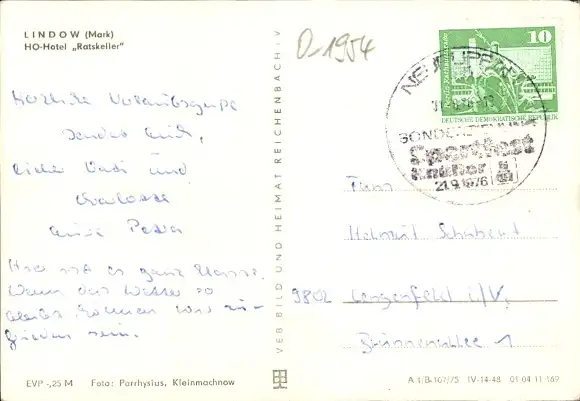 LINDOW (Mark)
HO-Hotel „Ratskeller"
0-1954
Herzliche Urlaubsgrüße
sendet Euch,
liebe Vati und
Eure Petra
Hier ist es ganz Klasse.
Wenn das Wetter so
bleibt, können wir zu-
frieden sein.
EVP -,25 M Foto: Parrhysius, Kleinmachnow
VEB BILD UND HEIMAT REICHENBACH i. V.
10
DEUTSCHE DEMOKRATISCHE REPUBLIK
NEURUPPIN
Sportfest
21.9.1976
Fam.
Helmut
9802 Lengenfeld i/V.
1
A 1/B-167/75 IV-14-48 01 04 11 169